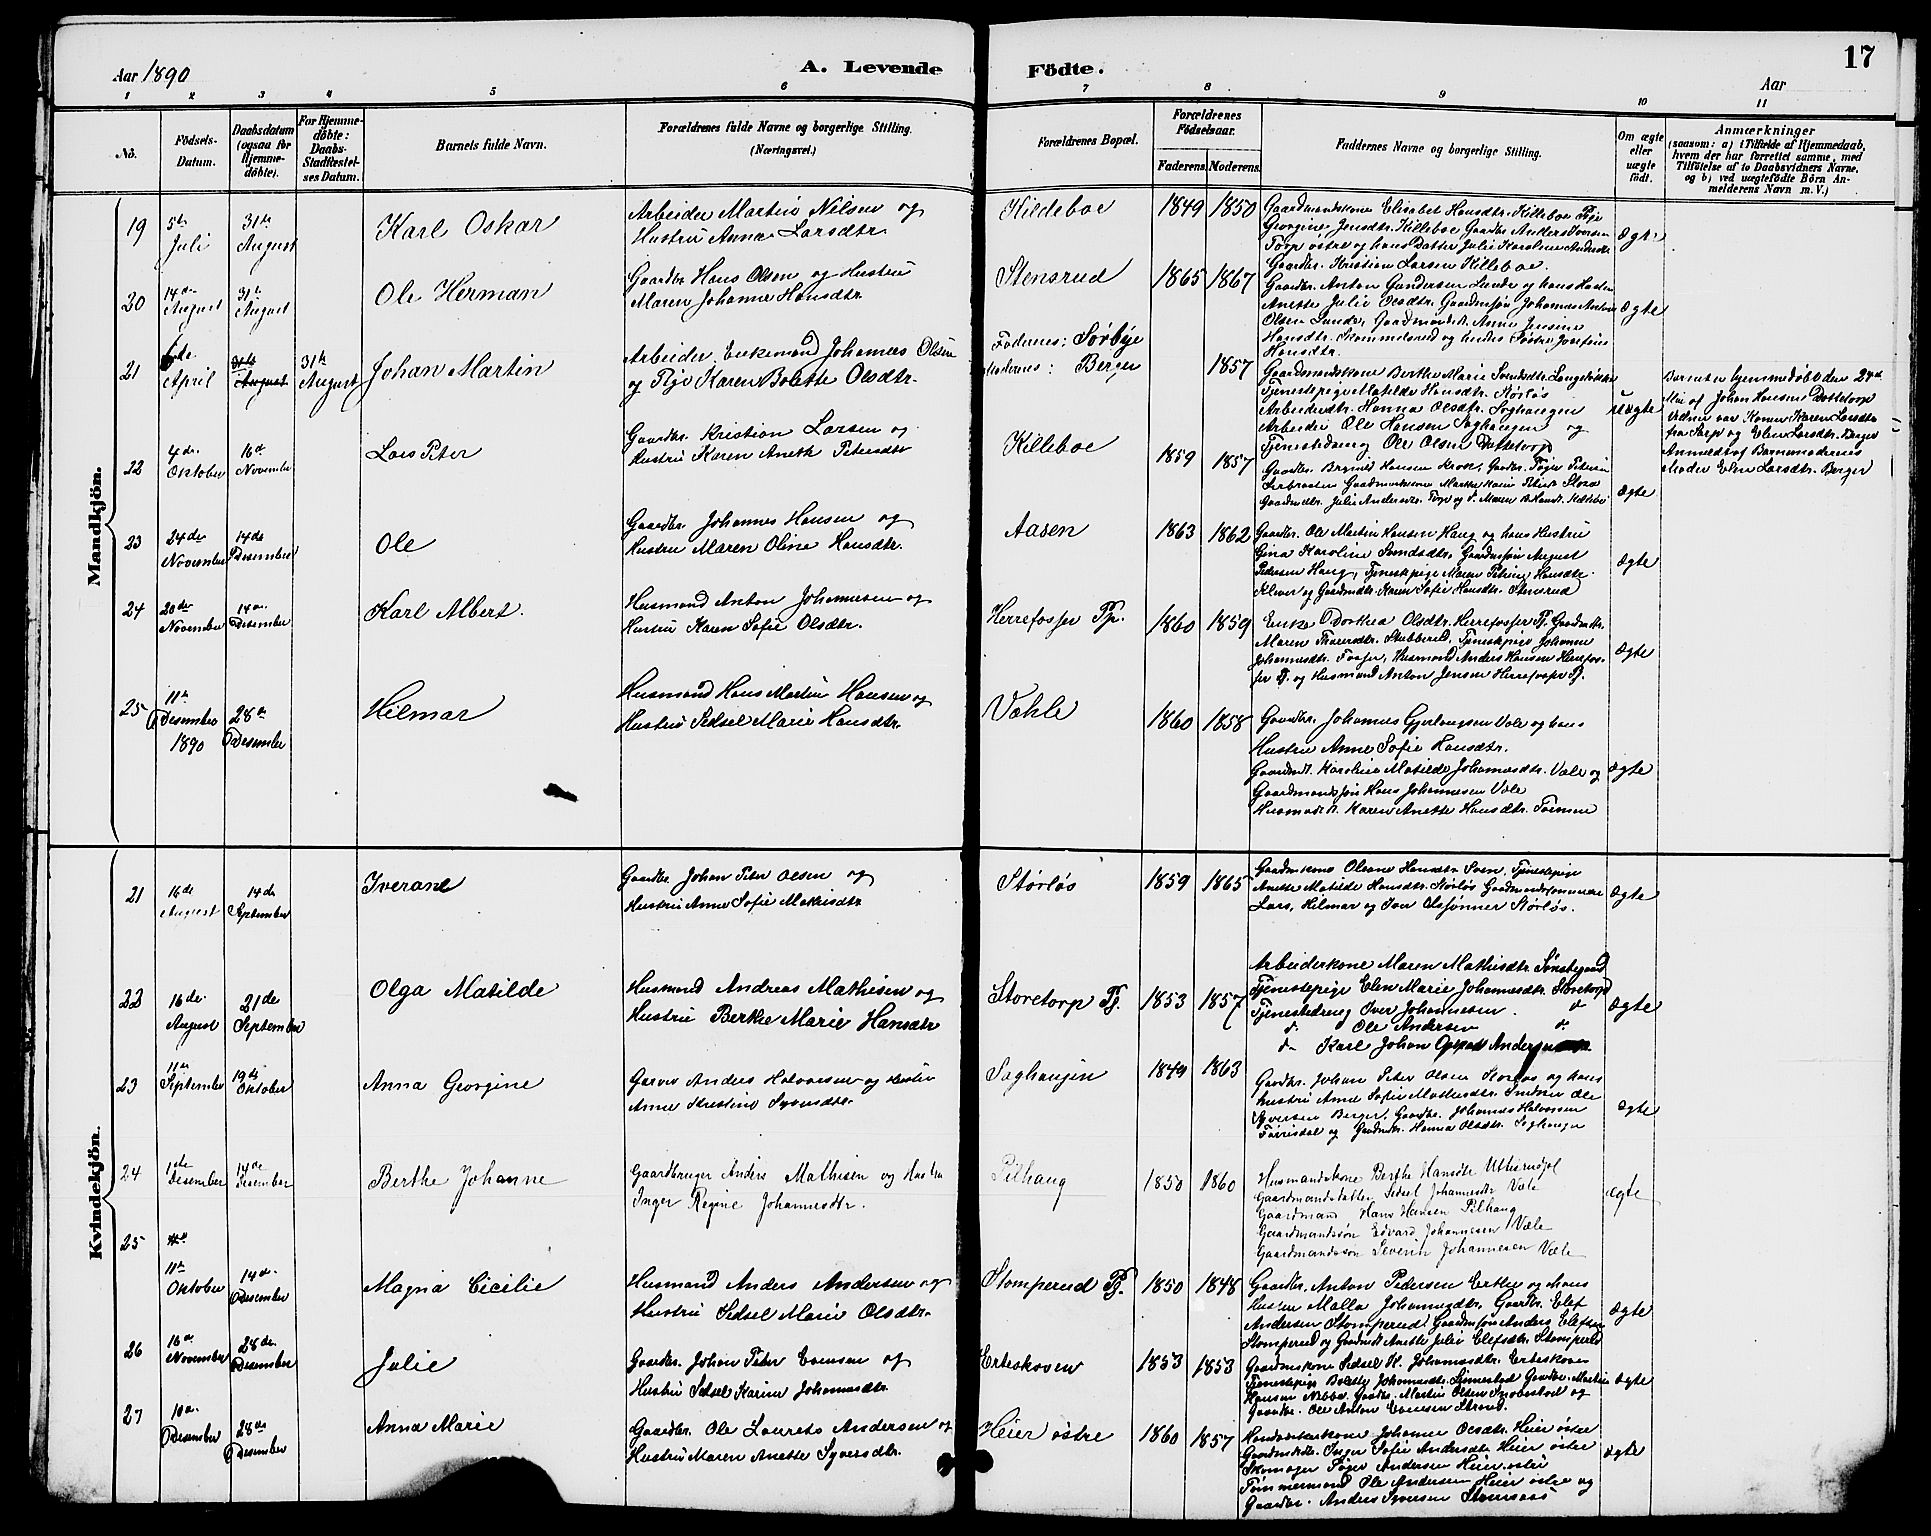 Aar 1890
A. Levende Födte.
17
Aar
1 2 3 4 5 6 7 8 9 10 11
No.
Födsels-Datum.
Daabsdatum (ogsaa for Hjemme-döbte).
For Hjemme-döbte: Daabs-Stadfæstel-ses Datum.
Barnets fulde Navn.
Forældrenes fulde Navne og borgerlige Stilling.
(Næringsvei.)
Forældrenes Bopæl.
Forældrenes Födselsaar.
Faderens. Moderens.
Faddernes Navne og borgerlige Stilling.
Om ægte eller uægte födt.
Anmærkninger
(saasom: a) i Tilfælde af Hjemmedaab, hvem der har forrettet samme, med Tilföielse af to Daabsvidners Navne, og b) ved uægtefödte Börn Anmelderens Navn m. V.)
Mandkjön.
19 5te Juli 31te August Karl Oskar
Arbeider Martin Nilsen og
Hustru Anna Larsdtr.
Kildeboe 1849 1850
Gaardmandskone Elisabet Hansdtr. Killeboe Pige
Georgine Jensdtr. Killeboe Gaardbr. Anders Iversen
Torp østre og hans Datter Julie Karoline Andersdtr.
Gaardbr. Kristian Larsen Killeboe.
ægte
20 14de August 31te August Ole Herman
Gaardbr. Hans Olsen og Hustru
Maren Johanne Hansdtr.
Stensrud 1865 1867
Gaardbr. Anton Gundersen Lunde og hans Søster
Anette Julie Olsdtr. Gaardmsøn Johannes Anton
Olsen Lunde, Gaardmandsk. Anne Jensine
Hansdtr. Skammelsrud og hendes Søster Josefine
Hansdtr.
ægte
21 6de April 31te August 31te August Johan Martin
Arbeider, Enkemand Johannes Olsen
og Pige Karen Bolette Olsdtr.
Faderens: Sørbye
Moderens: Berger
1857
Gaardmandskone Berthe Marie Svendsdtr.
Tjenestepige Matilde Hansdtr. Størløs
Arbeiderdtr. Hanna Olsdtr. Saghaugen
Arbeider Ole Hansen Saghaugen og
Tjenestedreng Ole Olsen Dottetorp
uægte
Barnet er hjemmedøbt den 24de
Mai af Johan Hansen Dottetorp
Vidner var Konen Karen Larsdtr.
fra Torp og Elen Larsdtr. Berger
Anmeldt af Barnemoderens
Moder Elen Larsdtr. Berger
22 4de Oktober 16de November Lars Peter
Gaardbr. Kristian Larsen og
Hustru Karen Anette Petersdtr.
Killeboe 1859 1857
Gaardbr. Brynild Hansen Krok, Gaardbr. Tøger Petersen
ægte
23 24de November 14de Desember Ole
Gaardbr. Johannes Hansen og
Hustru Maren Oline Hansdtr.
Aasen 1863 1862
Gaardbr. Ole Martin Hansen Haug og hans Hustru
Gina Karoline Svendsdtr. Gaardmsøn August
Pedersen Haug, Tjenestepige Maren Petrine Hansdtr.
Klever og Gaardmdtr. Karen Sofie Hansdtr. Stensrud
ægte
24 20de November 14de Desember Karl Albert.
Husmand Anton Johannesen og
Hustru Karen Sofie Olsdtr.
Herrefosser Pl. 1860 1859
Enke Dorthea Olsdtr. Herrefosser Pl. Gaardmdtr.
Maren Thoresdtr. Stubberud, Tjenestepige Johanne
Johannesdtr. Fosser, Husmand Anders Hansen Herrefos-
ser Pl. og Husmand Anton Jensen Herrefosser Pl.
ægte
25 11te Desember 1890 28de Desember Hilmar
Husmand Hans Martin Hansen og
Hustru Sedsel Marie Hansdtr.
Vahle 1860 1858
Gaardbr. Johannes Gjerlaugsen Vale og hans
Hustru Anne Sofie Hansdtr.
Gaardmdt. Karoline Matilde Johannesdtr. Vale og
Gaardmandssøn Hans Johannesen Vale
Husmdt. Karen Anette Hansdtr. Tømme
ægte
Kvindekjön.
21 16de August 14de September Iverane
Gaardbr. Johan Peter Olsen og
Hustru Anne Sofie Mathisdtr.
Størløs 1859 1865
Gaardmkone Olsine Hansdtr. Tjenestepige
Anette Matilde Hansdtr. Størløs Gaardmandssønnerne
Lars, Hilmar og Iver Olssønner Størløs.
ægte
22 16de August 21de September Olga Matilde
Husmand Andreas Mathisen og
Hustru Berthe Marie Hansdtr
Storetorp Pl. 1853 1857
Arbeiderkone Maren Mathisdtr. Sønstegaard
Tjenestepige Elen Marie Johannesdtr. Storetorp
Tjenestedreng Over Johannesen do
do Ole Andersen do
do Karl Johan Andersen
ægte
23 11te September 19de Oktober Anna Georgine
Garver Anders Halvorsen og Hustru
Anne Kristine Syversdtr.
Saghaugen 1849 1863
Gaardbr. Johan Peter Olsen Størløs og hans
Hustru Anne Sofie Mathisdtr. Ole
Syversen Berger, Gaardbr. Johannes Halvorsen
og Gaardmdtr. Hanna Olsdtr. Saghaugen
ægte
24 1de Desember 14de Desember Berthe Johanne
Gaardbruger Anders Mathisen og Hustru
Inger Regine Johannesdtr.
Pilhaug 1850 1860
Husmandskone Berthe Hansdtr
Gaardmandsdatter Sedsel Johannesdtr Væle
Gaardmand Hans Hansen Pilhaug
Gaardmandssøn Edvard Johannesen Væle
Gaardmandssøn Severin Johannesen Væle
ægte
25 11te Oktober 14de Desember Magna Cicilie
Husmand Anders Andersen og
Hustru Sedsel Marie Olsdtr.
Stomperud Pl. 1850 1848
Gaardbr. Anton Pedersen Erthe og hans
Hustru Malla Johannesdtr. Gaardbr. Elef
Andersen Stomperud, Gaardmsøn Anders Elefsen
Stomperud og Gaardmdt. Anette Julie Elefsdtr. Stomperud
ægte
26 16de November 28de Desember Julie
Gaardbr. Johan Peter Evensen og
Hustru Sedsel Karine Johannesdtr.
Erteskoven 1853 1853
Gaardmskone Sedsel K. Johannesdtr. Erteskoven
Tjenestepige Bolette Johannesdtr. Gaardbr. Martin
Hansen Nebba, Gaardbr. Martin Olsen og
Gaardbr. Ole Anton Evensen Strand.
ægte
27 10de Desember 28de Desember Anna Marie
Gaardbr. Ole Laurets Andersen og
Hustru Maren Anette Syversdtr.
Heier østre 1860 1857
Handverkerkone Johanne Olsdtr. Heier østre
Gaardmdtr. Inger Sofie Andersdtr Heier østre
Skomager Tøger Andersen Heier østre
Tømmermand Ole Andersen Heier østre og
Gaardbr. Anders Syversen
ægte